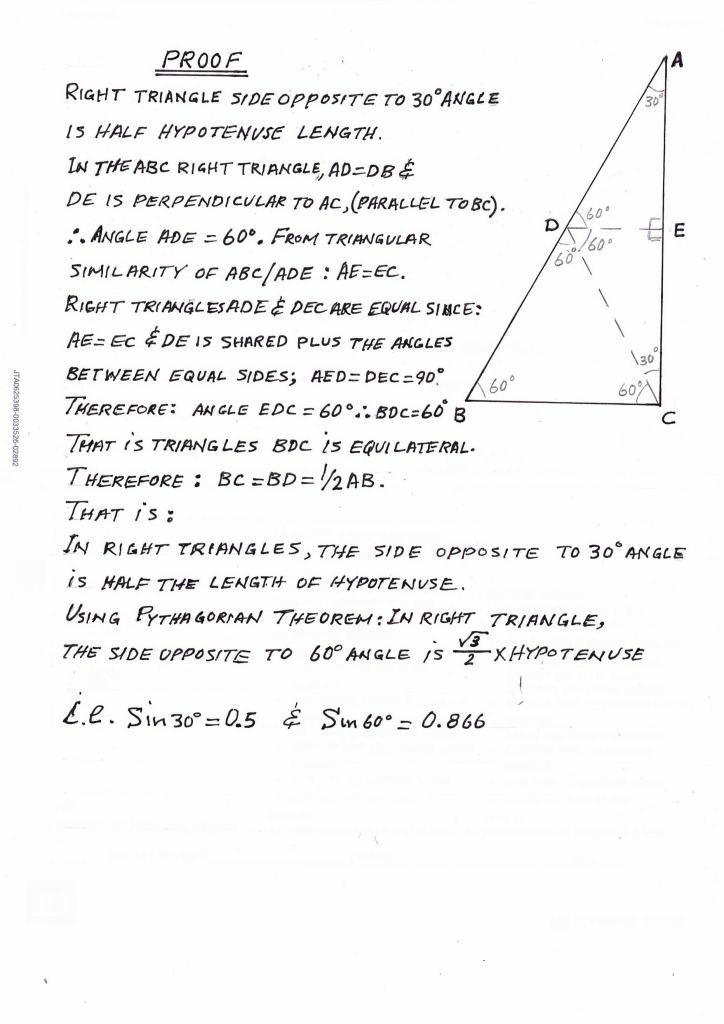 PROOF
RIGHT TRIANGLE SIDE OPPOSITE TO 30° ANGLE
IS HALF HYPOTENUSE LENGTH.
IN THE ABC RIGHT TRIANGLE, AD=DB &
DE IS PERPENDICULAR TO AC, (PARALLEL TO BC).
∴ ANGLE ADE = 60°. FROM TRIANGULAR
SIMILARITY OF ABC/ADE : AE=EC.
RIGHT TRIANGLES ADE & DEC ARE EQUAL SINCE:
AE=EC & DE IS SHARED PLUS THE ANGLES
BETWEEN EQUAL SIDES; AED=DEC=90°
THEREFORE: ANGLE EDC = 60° ∴ BDC=60°
THAT IS TRIANGLES BDC IS EQUILATERAL.
THEREFORE : BC=BD=1/2AB.
THAT IS :
IN RIGHT TRIANGLES, THE SIDE OPPOSITE TO 30° ANGLE
IS HALF THE LENGTH OF HYPOTENUSE.
USING PYTHAGORIAN THEOREM: IN RIGHT TRIANGLE,
THE SIDE OPPOSITE TO 60° ANGLE IS √3/2 X HYPOTENUSE
i.e. Sin 30° = 0.5 & Sin 60° = 0.866
A
30°
D
60°
E
60°
60°
30°
60°
60°
B
C
JTA0625398-0033526-02892